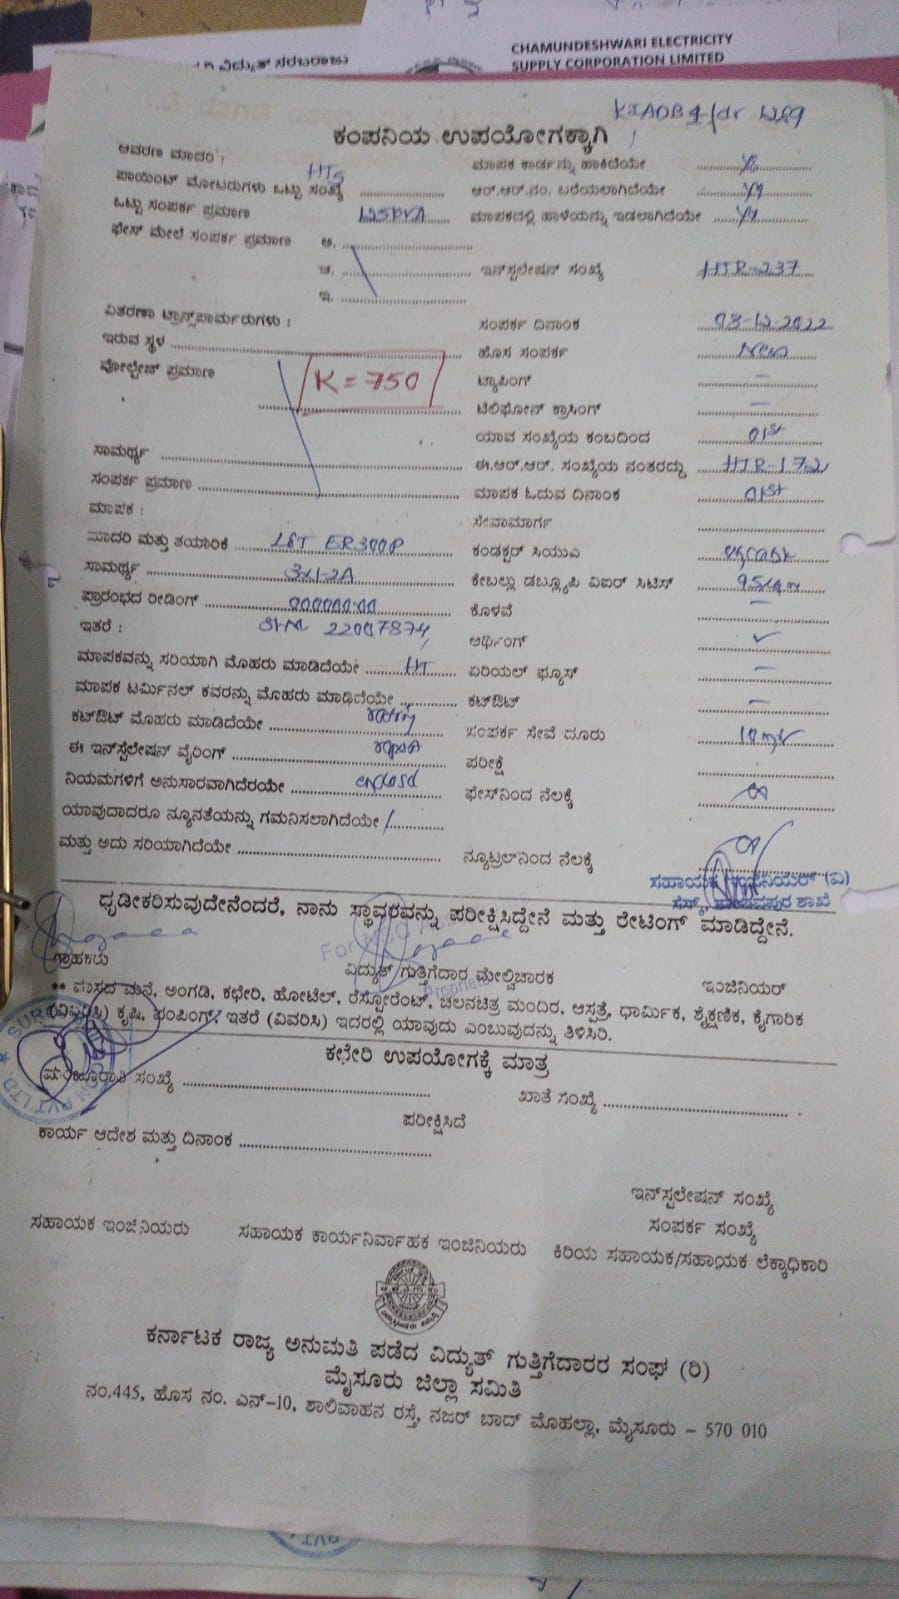 ವಿದ್ಯುತ್ ಸರಬರಾಜು
CHAMUNDESHWARI ELECTRICITY
SUPPLY CORPORATION LIMITED
ಕಂಪನಿಯ ಉಪಯೋಗಕ್ಕಾಗಿ
ಆವರಣ ಮಾದರಿ :
ಮಾಪಕ ಕಾರ್ಡನ್ನು ಹಾಕಿದೆಯೇ
ಪಾಯಿಂಟ್ ಮೋಟರುಗಳು ಒಟ್ಟು ಸಂಖ್ಯೆ
ಆರ್.ಆರ್.ನಂ. ಬರೆಯಲಾಗಿದೆಯೇ
ಒಟ್ಟು ಸಂಪರ್ಕ ಪ್ರಮಾಣ
ಮಾಪಕದಲ್ಲಿ ಹಾಳೆಯನ್ನು ಇಡಲಾಗಿದೆಯೇ
ಫೇಸ್ ಮೇಲೆ ಸಂಪರ್ಕ ಪ್ರಮಾಣ
ಇನ್‌ಸ್ಟಲೇಷನ್ ಸಂಖ್ಯೆ HTR-237
ವಿತರಣಾ ಟ್ರಾನ್ಸ್‌ಫಾರ್ಮರುಗಳು :
ಸಂಪರ್ಕ ದಿನಾಂಕ 03-12-2022
ಇರುವ ಸ್ಥಳ
ಹೊಸ ಸಂಪರ್ಕ New
ವೋಲ್ಟೇಜ್ ಪ್ರಮಾಣ K = 750
ಟ್ಯಾಪಿಂಗ್ –
ಟೆಲಿಫೋನ್ ಕ್ರಾಸಿಂಗ್ –
ಯಾವ ಸಂಖ್ಯೆಯ ಕಂಬದಿಂದ 01st
ಸಾಮರ್ಥ್ಯ
ಈ.ಆರ್.ಆರ್. ಸಂಖ್ಯೆಯ ನಂತರದ್ದು HTR-172
ಸಂಪರ್ಕ ಪ್ರಮಾಣ
ಮಾಪಕ ಓದುವ ದಿನಾಂಕ 01st
ಮಾಪಕ :
ಸೇವಾಮಾರ್ಗ
ಮಾದರಿ ಮತ್ತು ತಯಾರಿಕೆ L&T ER300P
ಕಂಡಕ್ಟರ್ ಸಿಯುಎ
ಸಾಮರ್ಥ್ಯ 3x1-2A
ಕೇಬಲ್ಲು ಡಬ್ಲ್ಯೂಪಿ ವಿಐರ್ ಸಿಟಿಸ್
ಪ್ರಾರಂಭದ ರೀಡಿಂಗ್ 000000.00
ಕೊಳವೆ –
ಇತರೆ : 22007874
ಆರ್ಥಿಂಗ್ ✓
ಮಾಪಕವನ್ನು ಸರಿಯಾಗಿ ಮೊಹರು ಮಾಡಿದೆಯೇ HT
ಏರಿಯಲ್ ಫ್ಯೂಸ್ –
ಮಾಪಕ ಟರ್ಮಿನಲ್ ಕವರನ್ನು ಮೊಹರು ಮಾಡಿದೆಯೇ
ಕಟ್‌ಔಟ್ –
ಕಟ್‌ಔಟ್ ಮೊಹರು ಮಾಡಿದೆಯೇ rating
ಸಂಪರ್ಕ ಸೇವೆ ದೂರು
ಈ ಇನ್‌ಸ್ಟಲೇಷನ್ ವೈರಿಂಗ್ report
ಪರೀಕ್ಷೆ
ನಿಯಮಗಳಿಗೆ ಅನುಸಾರವಾಗಿದೆರಯೇ
ಫೇಸ್‌ನಿಂದ ನೆಲಕ್ಕೆ
ಯಾವುದಾದರೂ ನ್ಯೂನತೆಯನ್ನು ಗಮನಿಸಲಾಗಿದೆಯೇ
ಮತ್ತು ಅದು ಸರಿಯಾಗಿದೆಯೇ
ನ್ಯೂಟ್ರಲ್‌ನಿಂದ ನೆಲಕ್ಕೆ
ಸಹಾಯಕ ಇಂಜಿನಿಯರ್ (ವಿ)
ಧೃಡೀಕರಿಸುವುದೇನೆಂದರೆ, ನಾನು ಸ್ಥಾವರವನ್ನು ಪರೀಕ್ಷಿಸಿದ್ದೇನೆ ಮತ್ತು ರೇಟಿಂಗ್ ಮಾಡಿದ್ದೇನೆ.
ಗ್ರಾಹಕರು ವಿದ್ಯುತ್ ಗುತ್ತಿಗೆದಾರ ಮೇಲ್ವಿಚಾರಕ ಇಂಜಿನಿಯರ್
** ವಾಸದ ಮನೆ, ಅಂಗಡಿ, ಕಛೇರಿ, ಹೋಟೆಲ್, ರೆಸ್ಟೋರೆಂಟ್, ಚಲನಚಿತ್ರ ಮಂದಿರ, ಆಸ್ಪತ್ರೆ, ಧಾರ್ಮಿಕ, ಶೈಕ್ಷಣಿಕ, ಕೈಗಾರಿಕ
(ವಿವರಿಸಿ) ಕೃಷಿ, ಪಂಪಿಂಗ್, ಇತರೆ (ವಿವರಿಸಿ) ಇದರಲ್ಲಿ ಯಾವುದು ಎಂಬುವುದನ್ನು ತಿಳಿಸಿರಿ.
ಕಛೇರಿ ಉಪಯೋಗಕ್ಕೆ ಮಾತ್ರ
ಮಂಜೂರಾತಿ ಸಂಖ್ಯೆ
ಖಾತೆ ಸಂಖ್ಯೆ
ಪರೀಕ್ಷಿಸಿದೆ
ಕಾರ್ಯ ಆದೇಶ ಮತ್ತು ದಿನಾಂಕ
ಇನ್‌ಸ್ಟಲೇಷನ್ ಸಂಖ್ಯೆ
ಸಂಪರ್ಕ ಸಂಖ್ಯೆ
ಸಹಾಯಕ ಇಂಜಿನಿಯರು ಸಹಾಯಕ ಕಾರ್ಯನಿರ್ವಾಹಕ ಇಂಜಿನಿಯರು ಕಿರಿಯ ಸಹಾಯಕ/ಸಹಾಯಕ ಲೆಕ್ಕಾಧಿಕಾರಿ
ಕರ್ನಾಟಕ ರಾಜ್ಯ ಅನುಮತಿ ಪಡೆದ ವಿದ್ಯುತ್ ಗುತ್ತಿಗೆದಾರರ ಸಂಘ (ರಿ)
ಮೈಸೂರು ಜಿಲ್ಲಾ ಸಮಿತಿ
ನಂ.445, ಹೊಸ ನಂ. ಎನ್-10, ಶಾಲಿವಾಹನ ರಸ್ತೆ, ನಜರ್ ಬಾದ್ ಮೊಹಲ್ಲಾ, ಮೈಸೂರು – 570 010